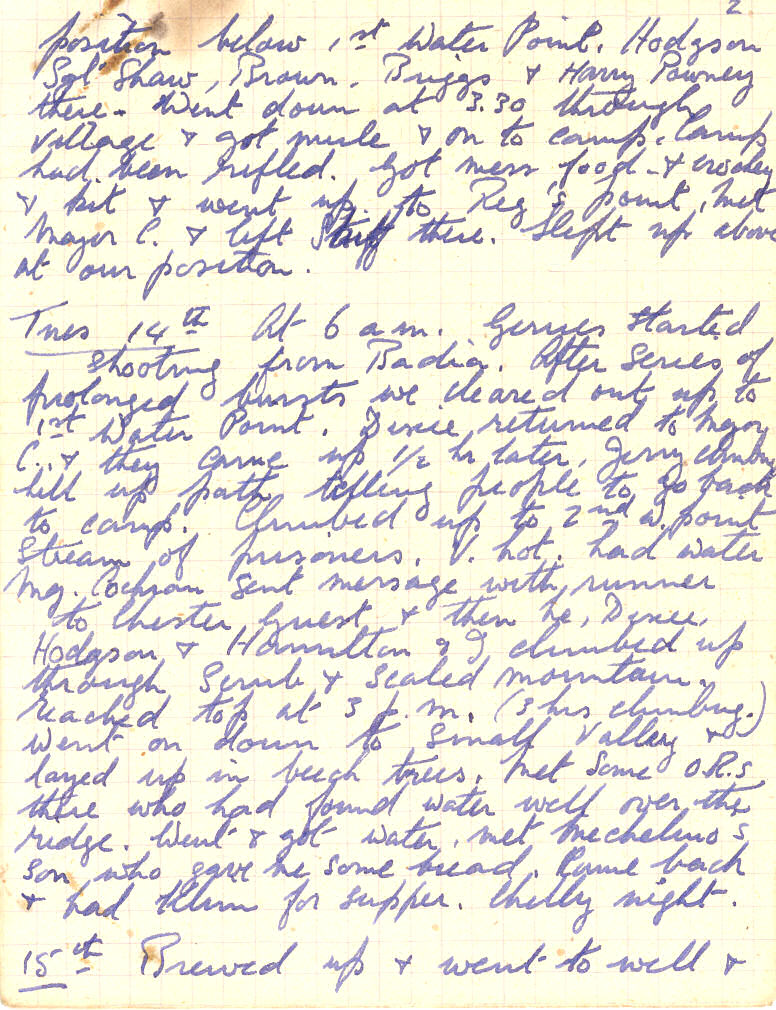 2
position below 1st Water Point. Hodgson
Sgt Shaw, Brown, Briggs & Harry Powney
there. Went down at 3.30 through
village & got mule & on to camp. Camp
had been rifled. Got mess, food &
& kit & went up to Reg's point, met
Major C. & left Stuff there. Slept up above
at our position.
Tues 14th At 6 a.m. Gerries started
shooting from Badia. After series of
prolonged bursts we cleared out up to
1st Water Point. Dixie returned to Major
C., & they came up 1/2 hr later, Jerry climbing
hill up path telling people to go back
to camp. Climbed up to 2nd W. point
Stream of prisoners. V. hot. had water
Mg. Cochran sent message with runner
to Chester Guest & then he, Dixie,
Hodgson & Hamilton & I climbed up
through Scrub & Scaled mountain.
reached top at 3 p.m. (3 hrs climbing.)
Went on down to Small Valley &
layed up in beech trees. Met Some O.R.s
there who had found water well over the
ridge. Went & got water, met Mechelino's
son who gave me some bread. Came back
& had Klim for supper. Chilly night.
15th Brewed up & went to well &